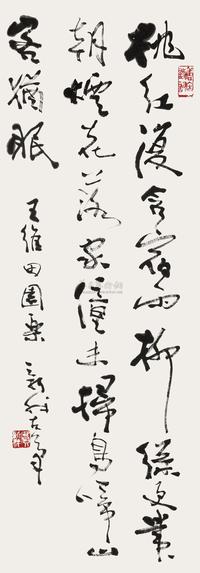 桃紅復含宿雨柳綠更帶
朝煙花落家僮未掃鳥啼山
客猶眠
王維田園樂